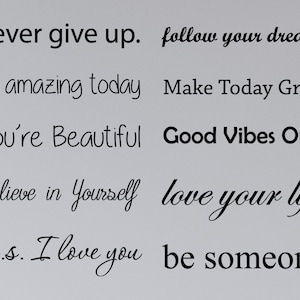 ever give up.
follow your drea
amazing today
Make Today Gr
ou're Beautiful
Good Vibes O
lieve in Yourself
love your l
.s. I love you
be someon